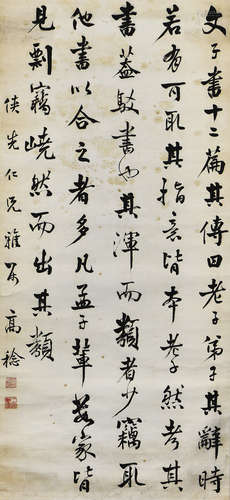 文子書十二篇其傳曰老子弟子其辭時
若有可取其指意皆本老子然考其
書蓋駁書也其渾而類者少竊取
他書以合之者多凡孟子輩數家皆
見剽竊嶢然而出其類
俠先仁兄雅屬 高稔